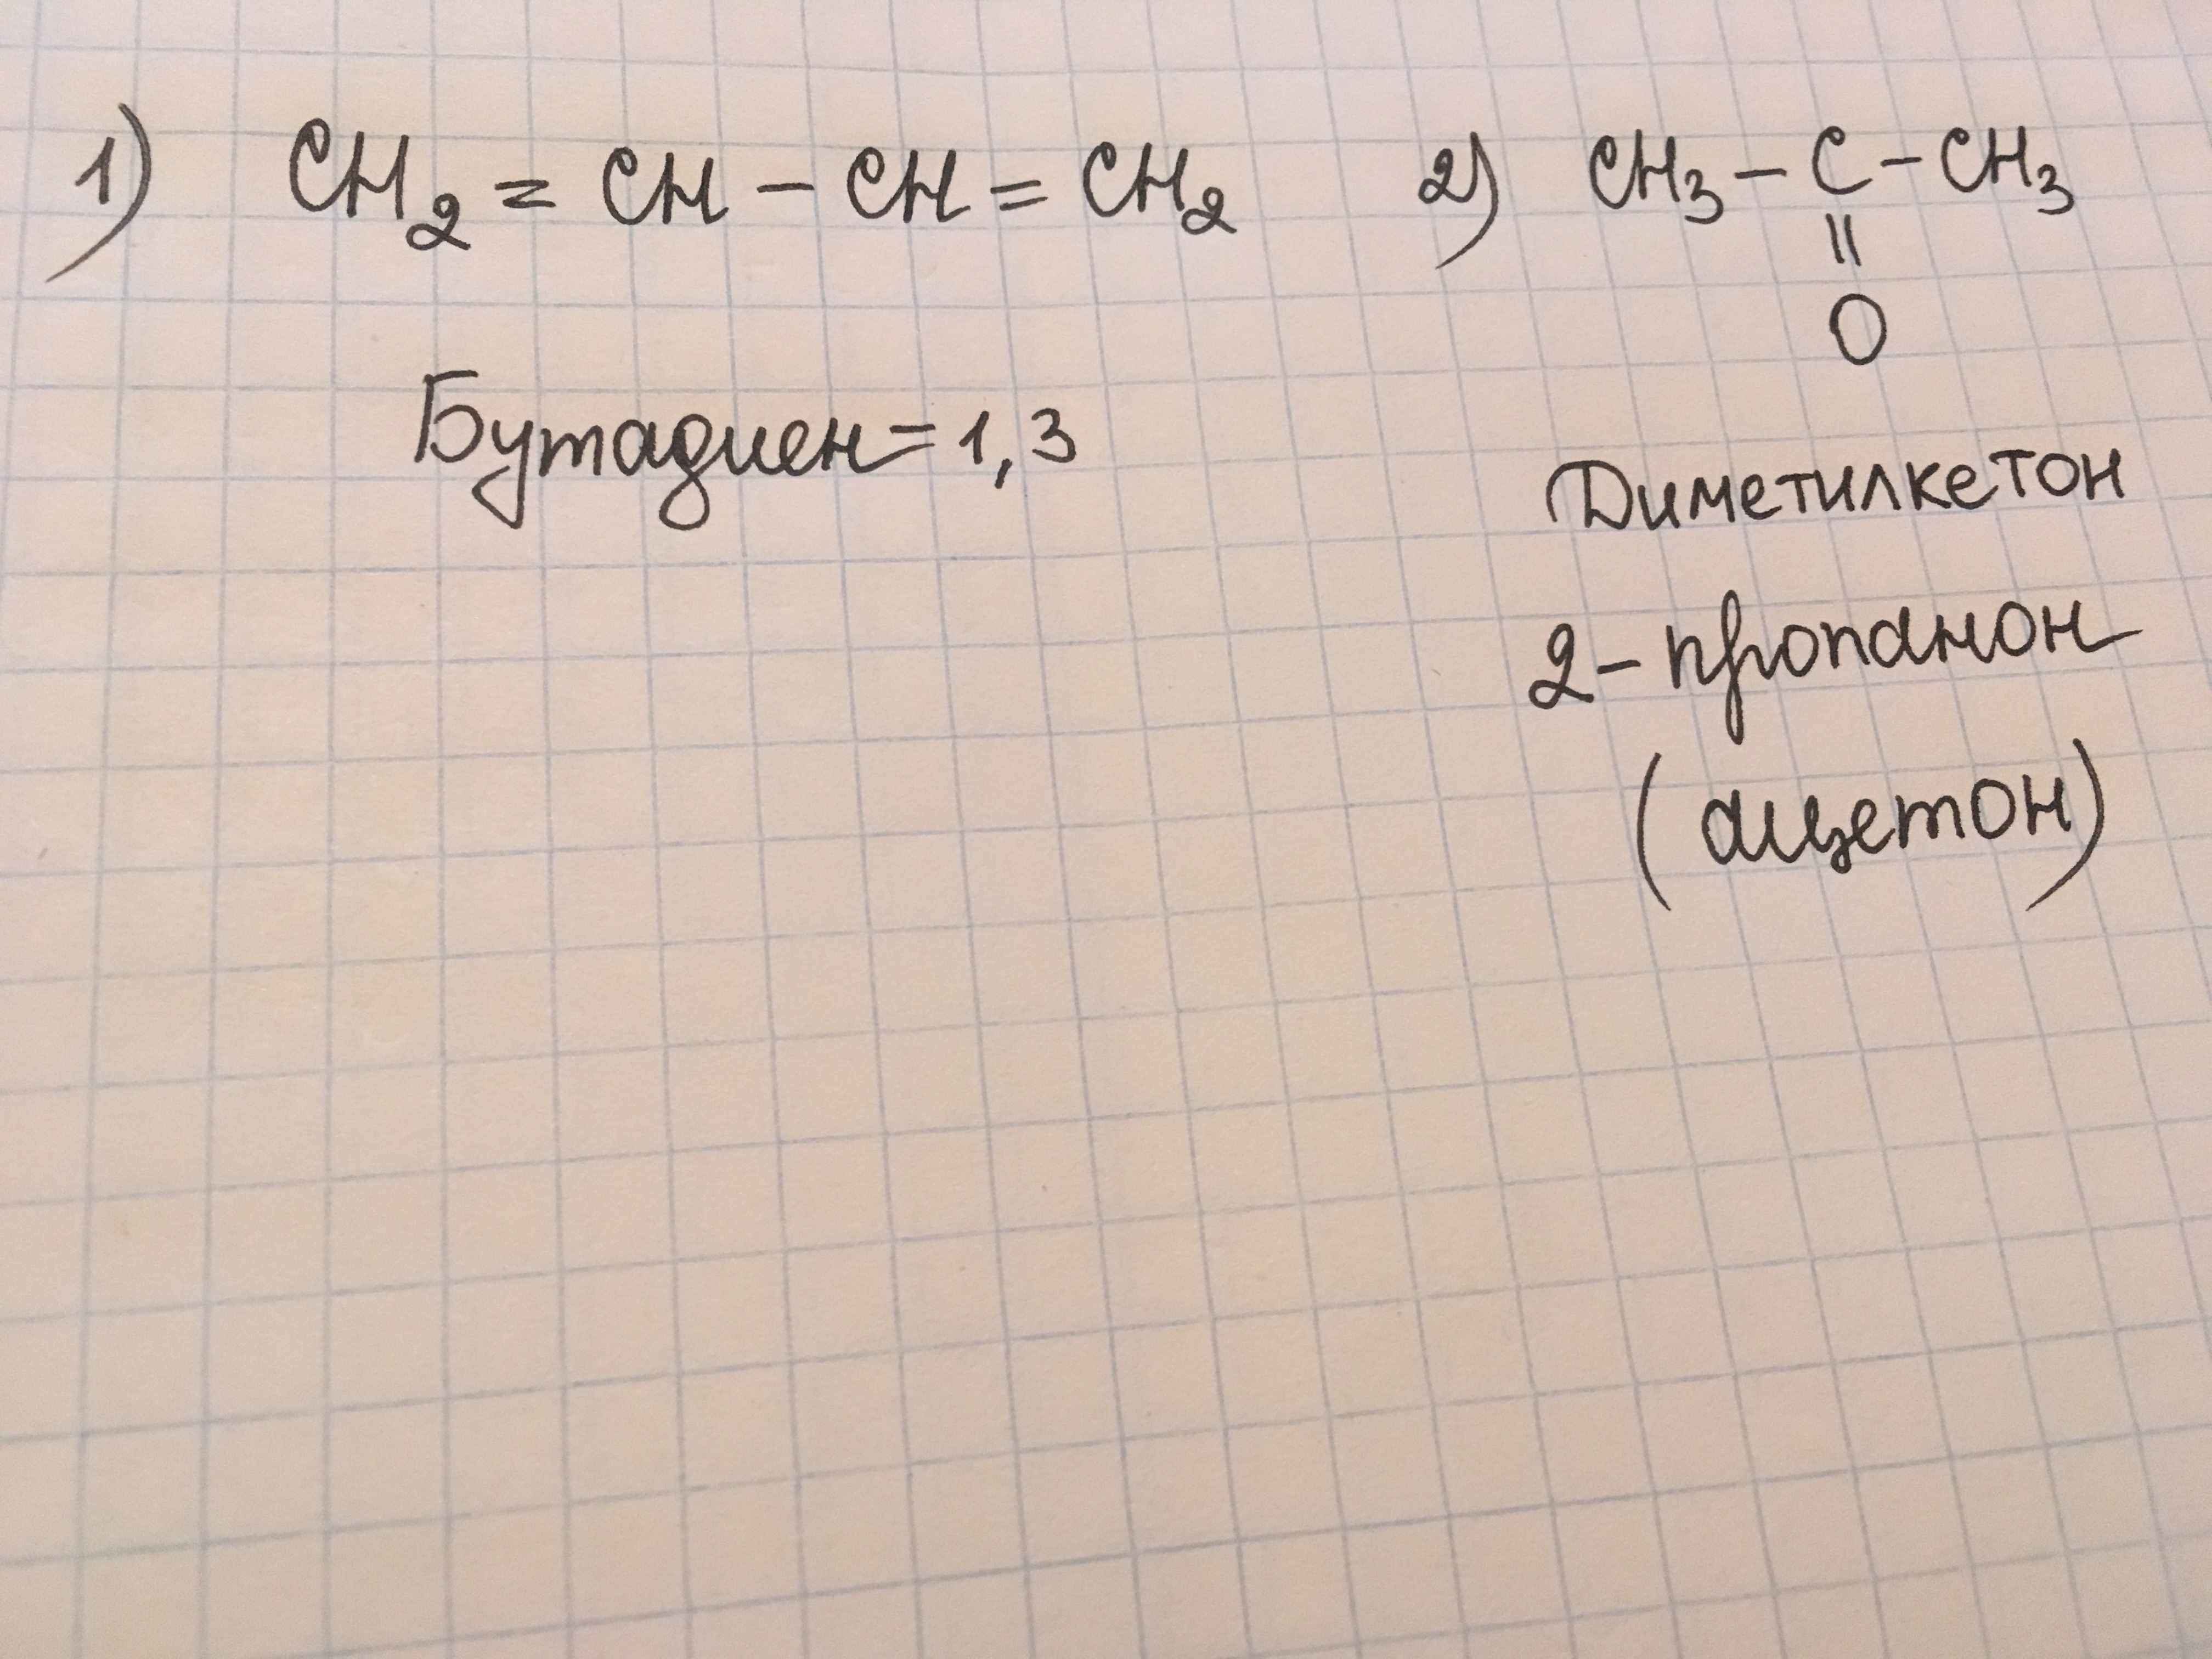 1) CH₂ = CH – CH = CH₂
Бутадиен = 1,3
2) CH₃ – C – CH₃
||
O
Диметилкетон
2 – пропанон
(ацетон)